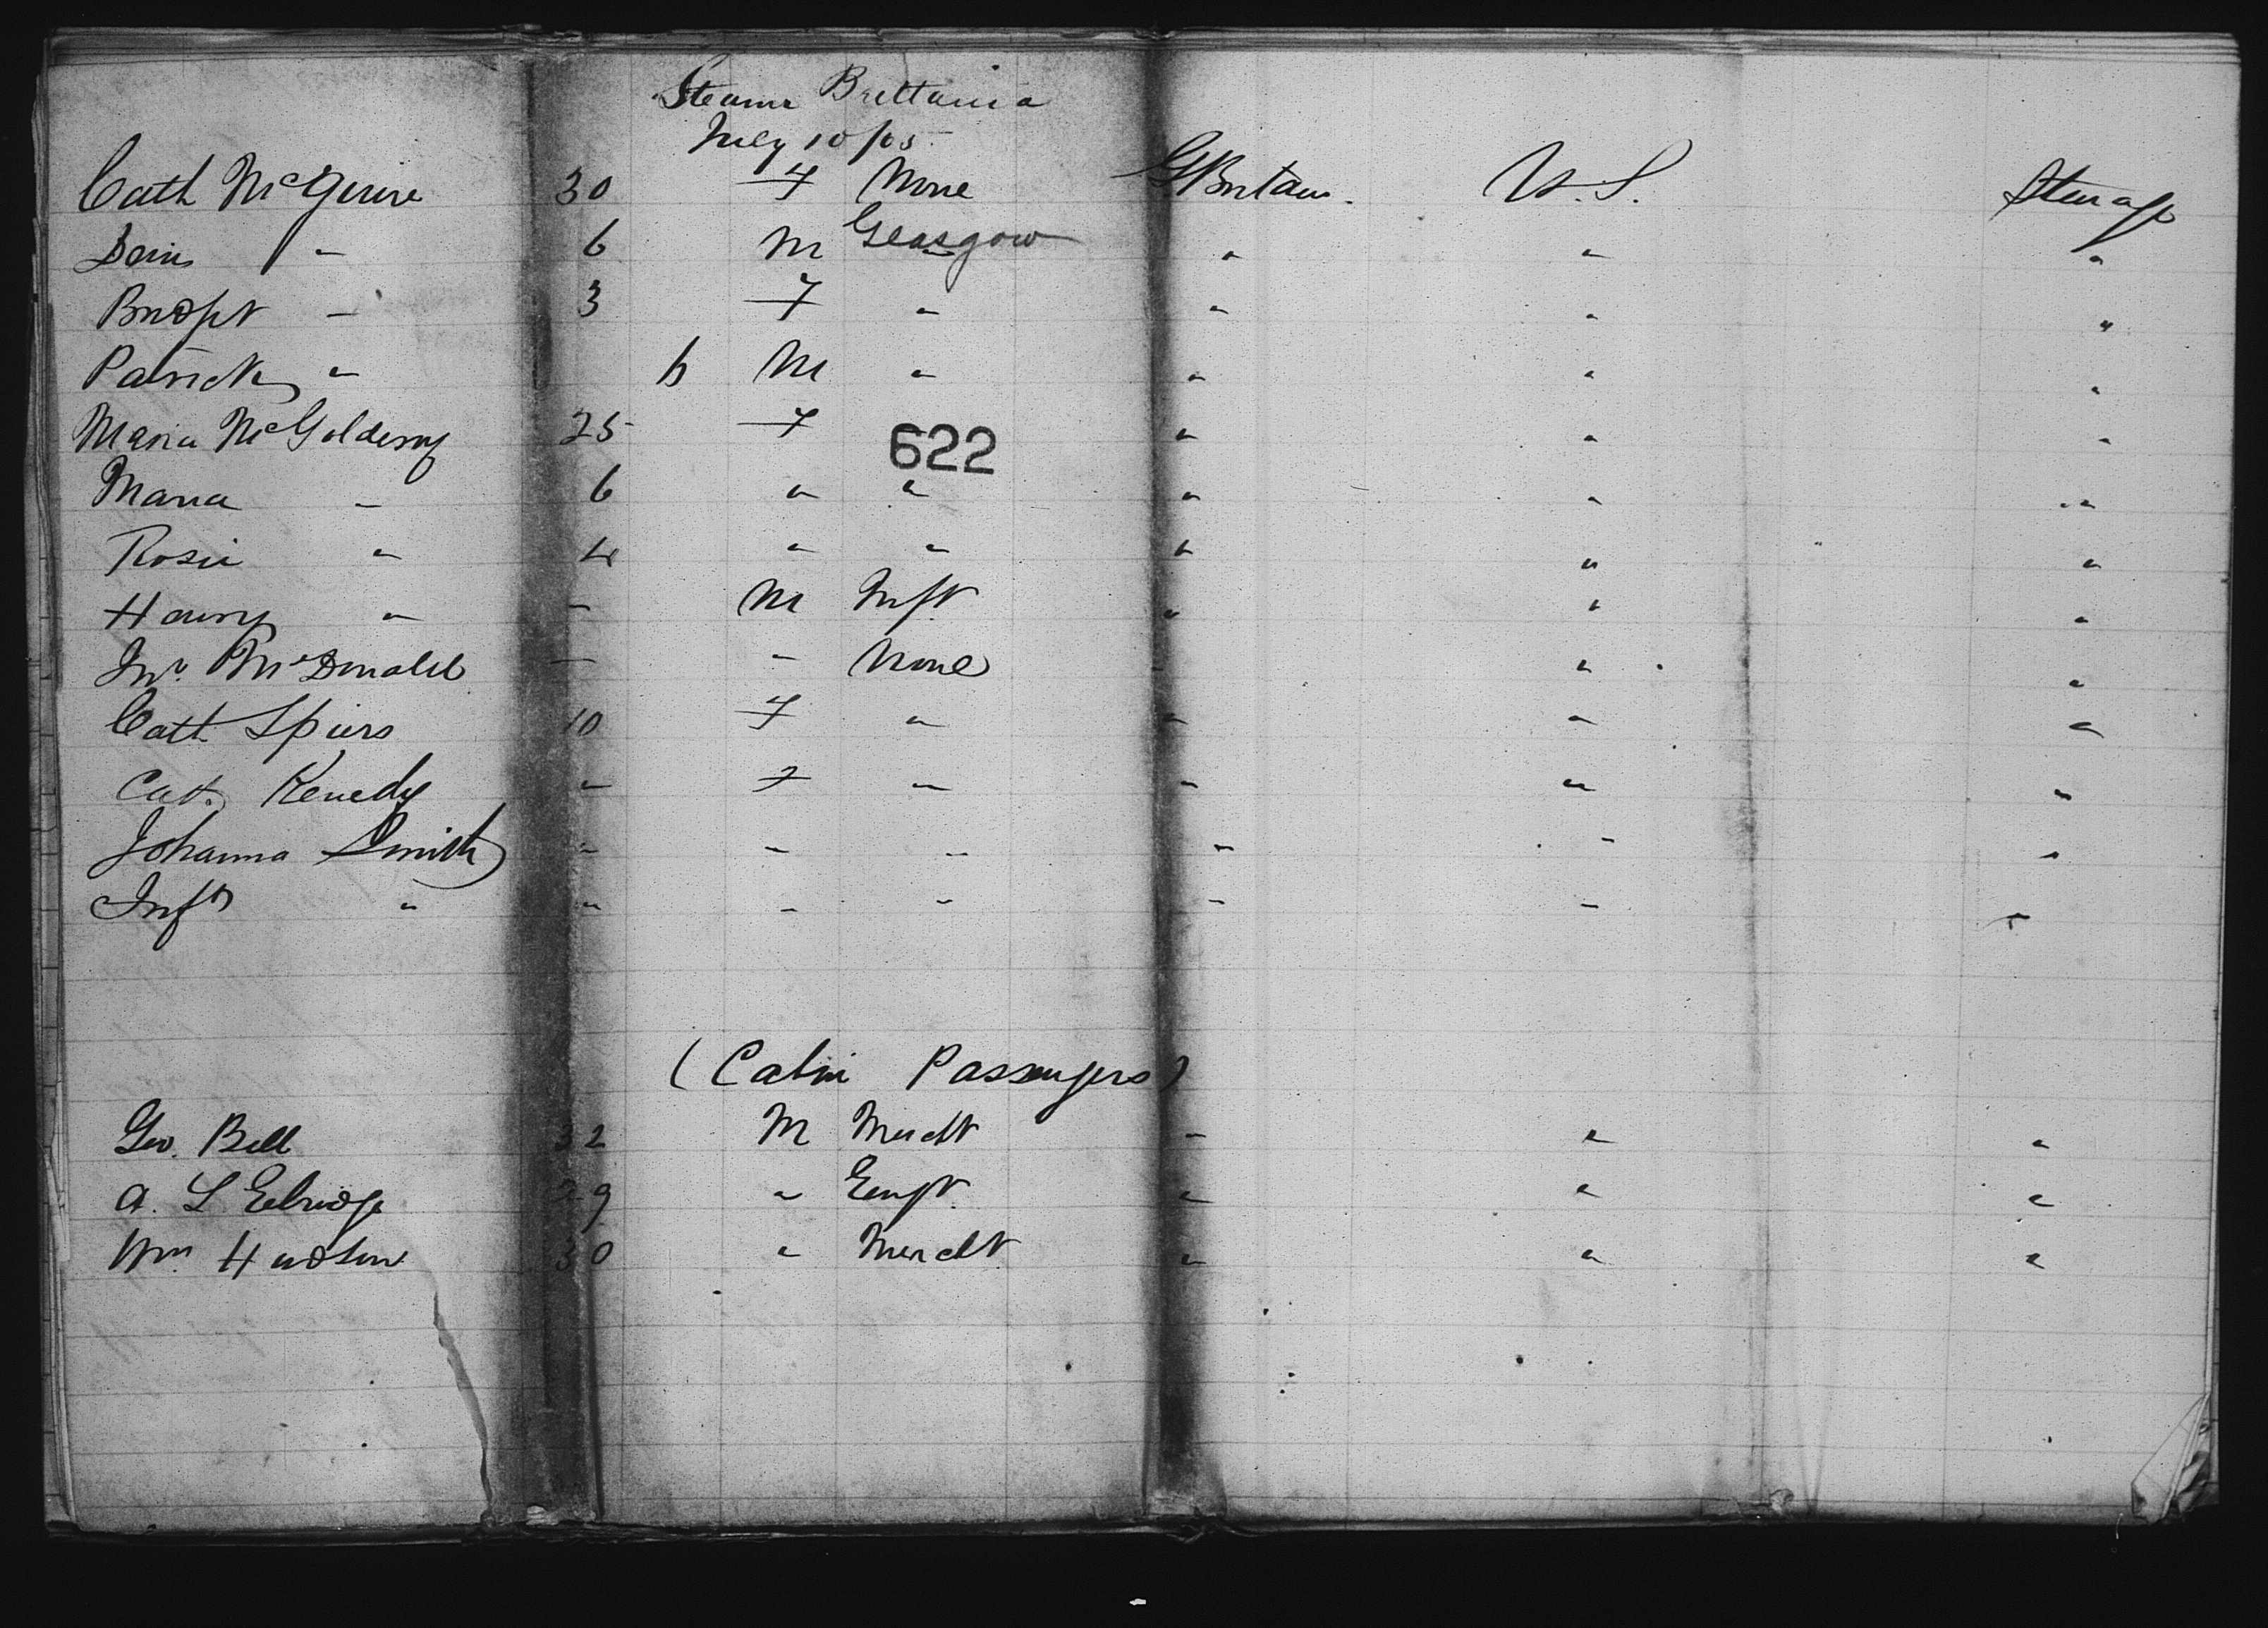 Steamr Brittania
July 10/65
Cath McGuire 30 f None GBritain. U.S. Steerage
Glasgow
Denis " 6 M " " " "
Bridget " 3 f " " " "
Patrick " 6 M " " " "
Maria McGolderey 25 f " " "
622
Maria " 6 " " " " "
Rosie " 4 " " " " "
Henry " - M Inft " " "
Jno. McDonald - " None " " "
Cath Spiers 10 f " " " "
Cath. Kenedy " f " " " "
Johanna Smith " " " " " "
Inft " " " " " " "
(Cabin Passengers)
Geo. Bell 32 M Mercht " " "
A. L Eelridge 29 " " " "
Wm Hudson 30 " Mercht " " "